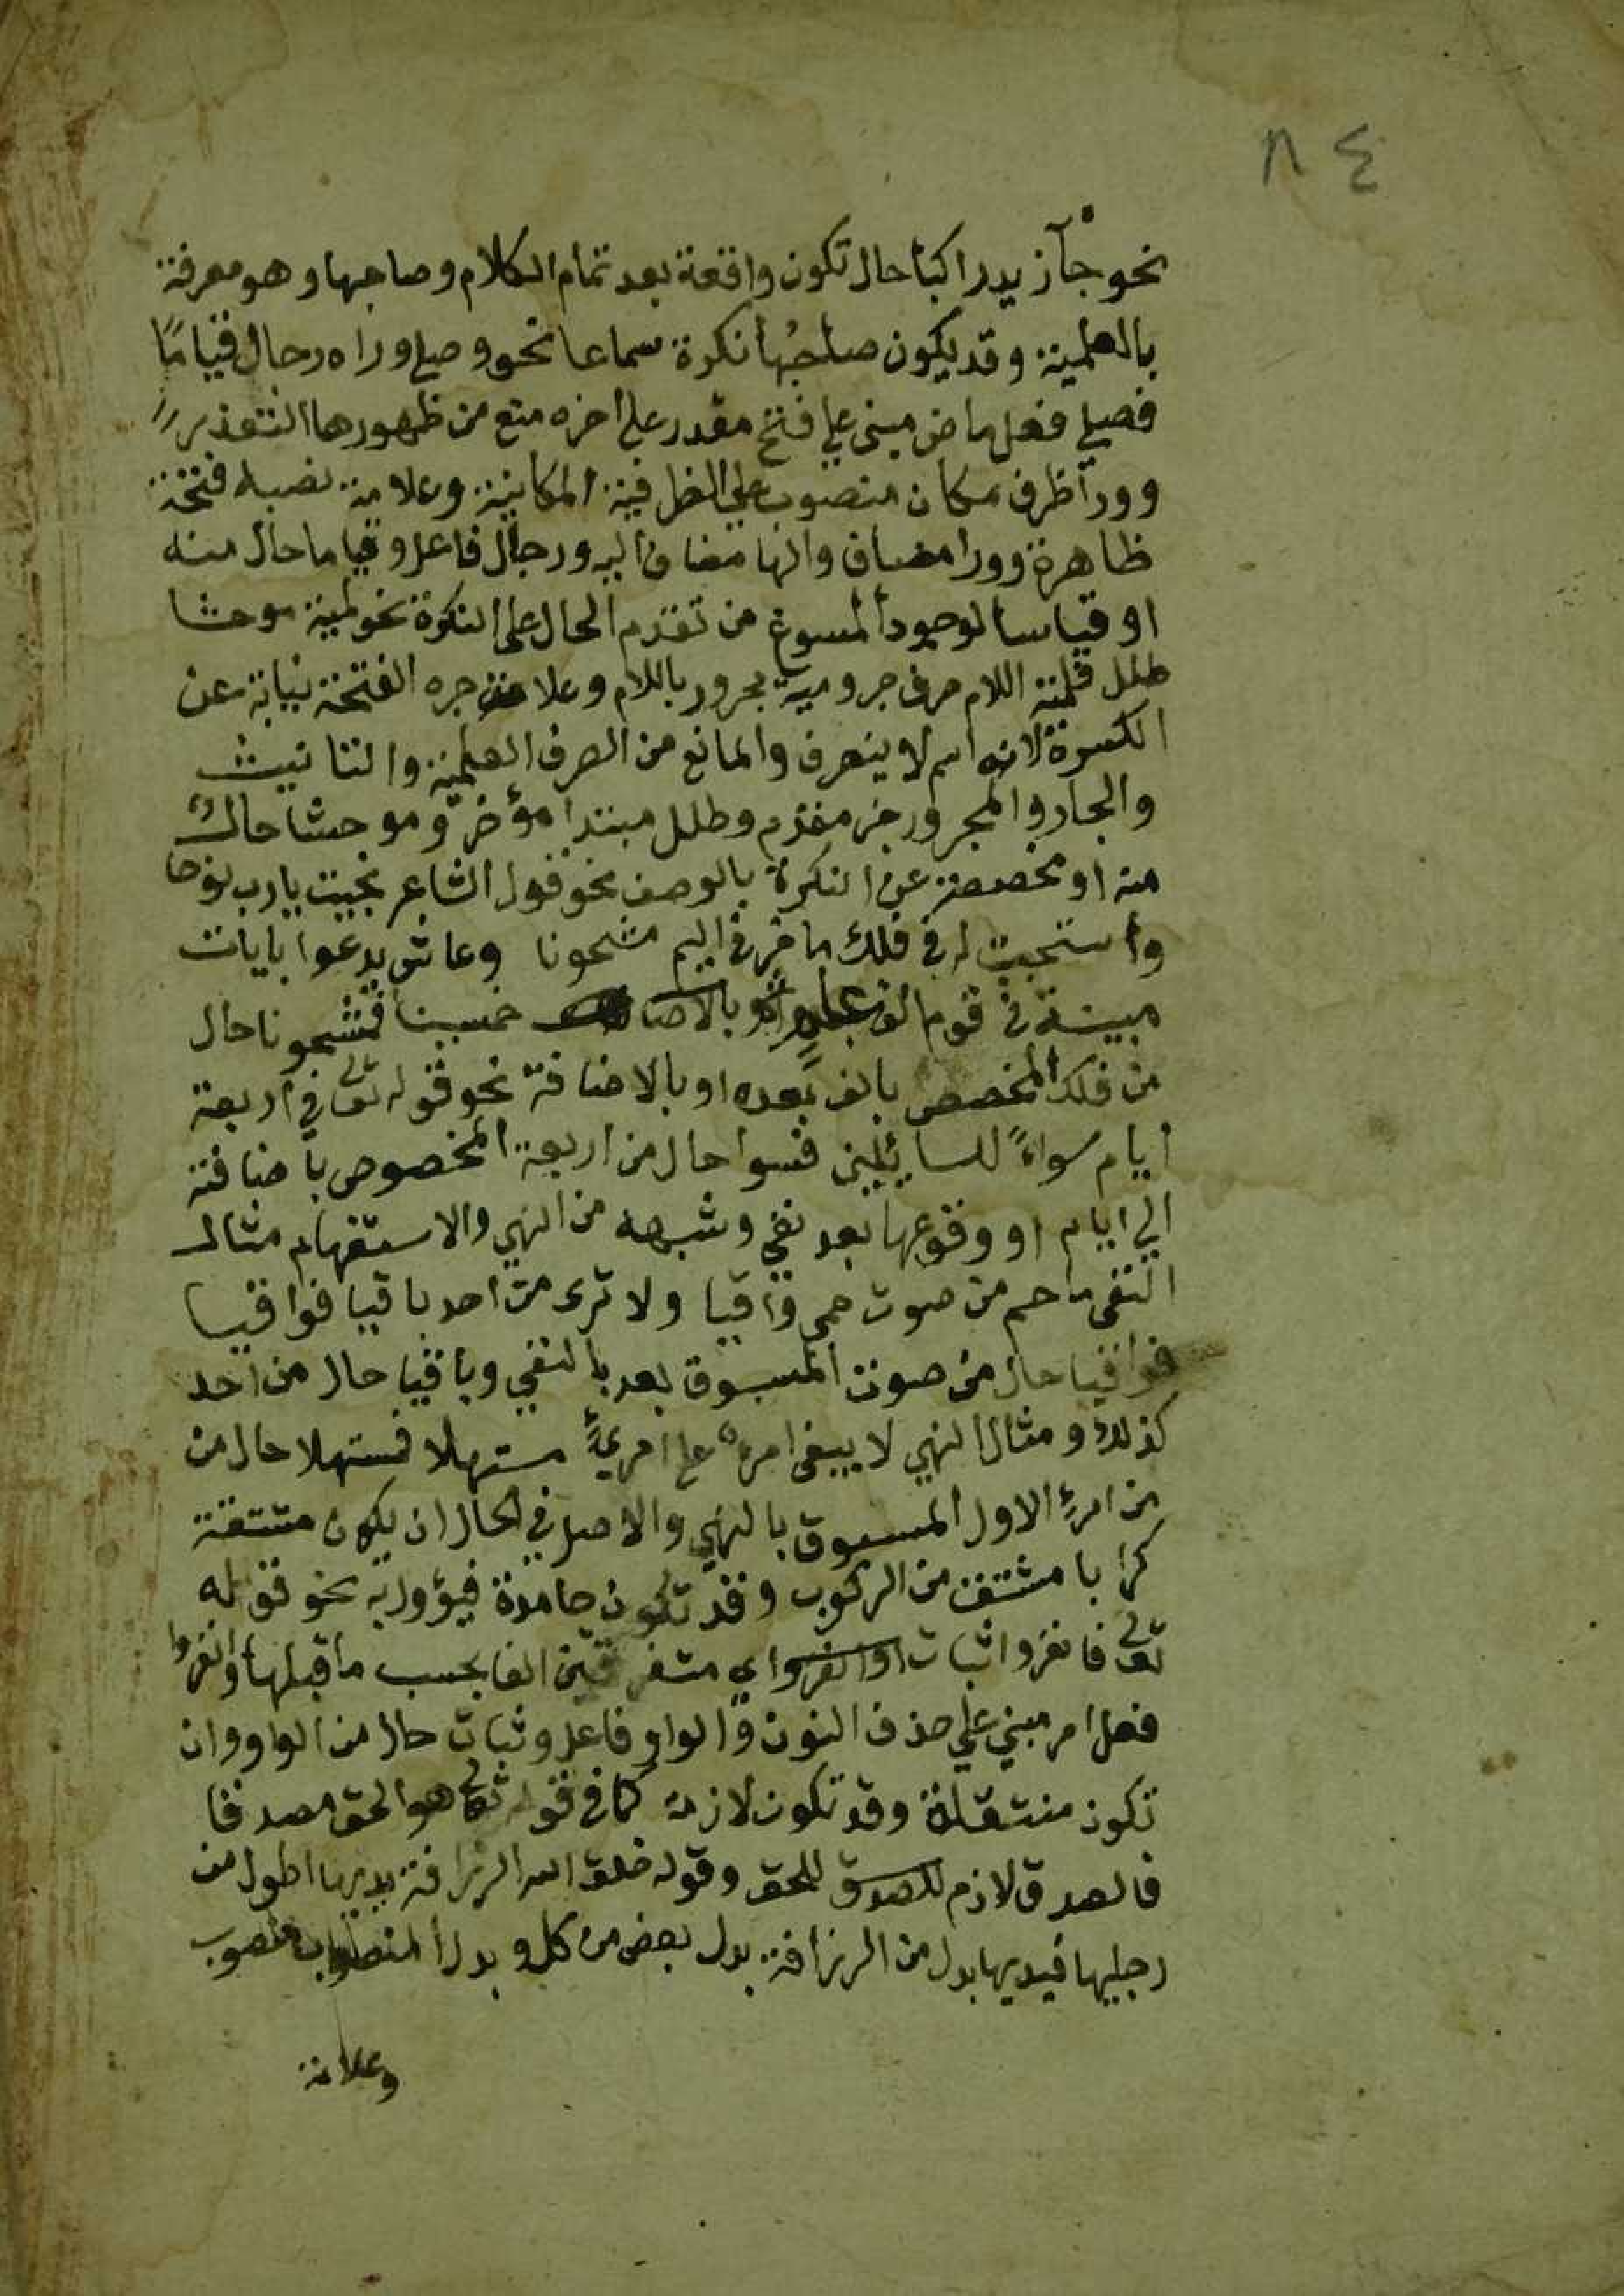 ٨٤
نحو جآ زيد راكبا حال تكون واقعة بعد تمام الكلام وصاحبها وهو معرفة
بالعلمية وقد يكون صاحبُها نكرة سماعا نحو وصلى وراه رجال قيامًا
فصلي فعل ماض مبنى علي فتح مقدر على اخره منع من ظهورها التعذر
وورآ ظرف مكان منصوب علي الظرفية المكانية وعلامة نصبه فتحة
ظاهرة وورا مضاف والها مضاف اليه ورجال فاعل وقياما حال منه
او قياسا لوجود المسوغ من تقدم الحال على النكرة نحو لمية موحشا
طلل فلمية اللام حرف جر ومية مجرور باللام وعلامة جره الفتحة نيابة عن
الكسرة لانه اسم لا ينصرف والمانع من الصرف العلمية والتانيث
والجار والمجرور خبر مقدم وطلل مبتدا مؤخر وموحشا حال
منه او مخصصة عن النكرة بالوصف نحو قول الشاعر نجيت يارب نوحا
واستجبت له في فلك ماخر في اليم مشحونا وعاش يدعوا بايات
مبينة في قومه الف عام خمسينا فمشحونا حال
من فلك المخصص بالف بعده او بالاضافة نحو قوله تعالى في اربعة
ايام سواءً للسائيلين فسوا حال من اربعة المخصوص باضافة
الي ايام او وقوعها بعد نفي وشبهه من النهي والاستفهام مثال
النفى ما حم من صوت حمى واقيا ولا ترى من احد باقيا فواقيا
فواقيا حال من صوت المسبوق بعد بالنفي وباقيا حال من احد
كذلك ومثال النهي لا يبغى امرء على امريءً مستهلا فمستهلا حال من
من امرءٍ الاول المسبوق بالنهي والاصل في الحال ان يكون مشتقة
كراكبا مشتق من الركوب وقد تكون جامدة فيؤول به نحو قوله
تعالى فانفروا ثبات او انفروا اي متفرقين الفا بحسب ما قبلها وانفروا
فعل امر مبني علي حذف النون والواو فاعل وثبات حال من الواو وان
تكون منتقلة وقد تكون لازمة كما في قوله تعالى هو الحق مصدقا
فالصدق لازم للصدق للحق وقوله خلق الله الزرافة يديها اطول من
رجليها فيديها بدل من الزرافة بدل بعض من كل وبدل المنصوب منصوب
وعلامة